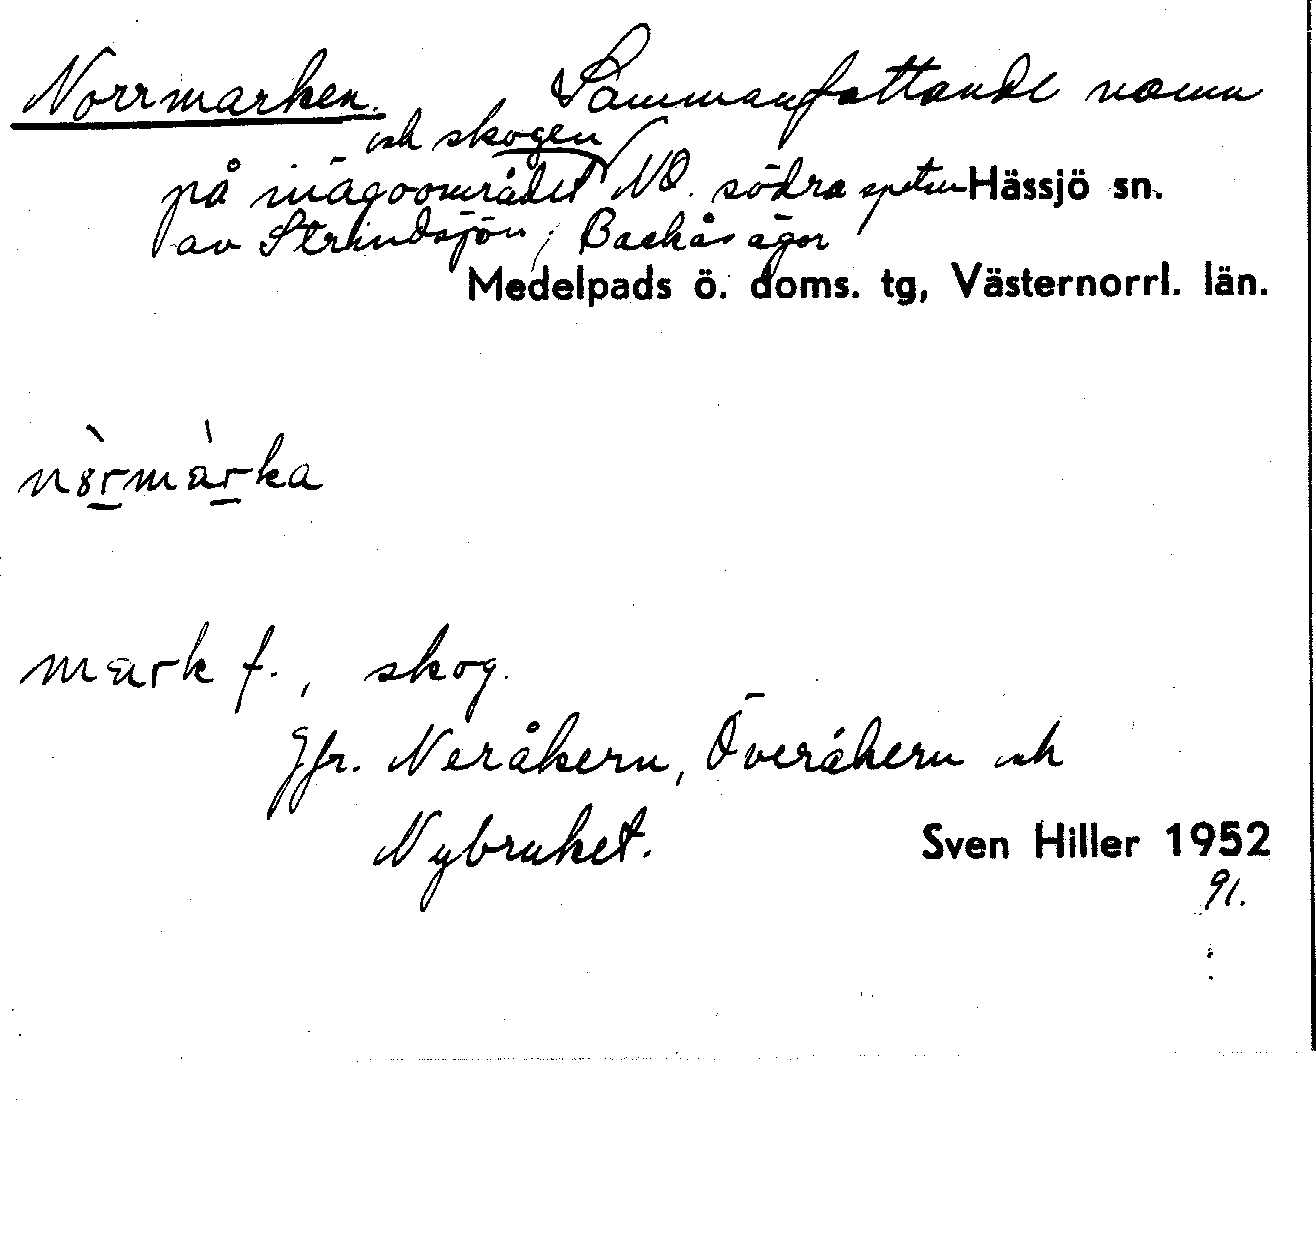 Norrmarken. Sammanfattande namn
och skogen
på inägoområdet NO. södra spetsen Hässjö sn.
av Strindsjön, Backås ägor
Medelpads ö. doms. tg, Västernorrl. län.
nòrmàrka
mark f., skog.
Jfr. Neråkern, Överåkern och
Nybruket. Sven Hiller 1952
91.